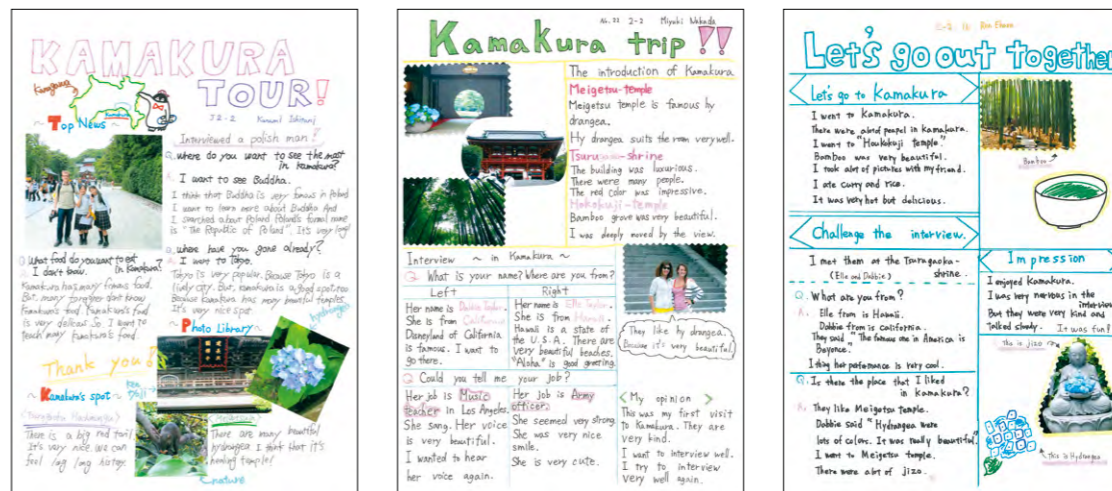 KAMAKURA
TOUR!
J2-2
~ Top News ~
Interviewed a polish man!
Q. where do you want to see the most
in Kamakura?
A. I want to see Buddha.
I think that Buddha is very famous in Poland
I want to learn more about Buddha And
I searched about Poland Poland's formal name
is "The Republic of Poland". It's very long!
Q. where have you gone already?
A. I went to Tokyo.
Tokyo is very popular. Because Tokyo is a
lively city. But, kamakura is a good spot too
Because Kamakura has many beautiful temples.
It's very nice spot.
Q. What food do you want to eat
in Kamakura?
A. I don't know.
Kamakura has many famous food.
But, many foreigners don't know
Kamakura's food. Kamakura's food
is very delicious. So I want to
teach many Kamakura's food.
~ Photo Library ~
hydrangea
Thank you!
Kamakura's spot
There is a big red torii.
It's very nice. We can
feel long long history.
There are many beautiful
hydrangea. I think that it's
healing temple!
nature
No. 22 2-2 Miyuki Nakada
Kamakura trip!!
The introduction of Kamakura
Meigetsu-temple
Meigetsu temple is famous by
drangea.
Hy drangea suits the room very well.
Tsuru shrine
The building was luxurious.
There were many people.
The red color was impressive.
Hokokuji-temple
Bamboo grove was very beautiful.
I was deeply moved by the view.
Interview ~ in Kamakura ~
Q What is your name? Where are you from?
Left
Her name is Dabbie Taylor.
She is from California
Disneyland of California
is famous. I want to
go there.
Right
Her name is Elle Taylor.
She is from Hawaii.
Hawaii is a state of
the U.S.A. There are
very beautiful beaches.
"Aloha" is good greeting.
They like hy drangea.
Because it's very beautiful
Q Could you tell me your job?
Her job is Music
teacher in Los Angeles.
She sang. Her voice
is very beautiful.
I wanted to hear
her voice again.
Her job is Army
officer.
She seemed very strong.
She was very nice
smile.
She is very cute.
<My opinion>
This was my first visit
to Kamakura. They are
very kind.
I want to interview well.
I try to interview
very well again.
Let's go out together
Let's go to Kamakura
I went to Kamakura.
There were alot of peopel in Kamakura.
I went to "Houkokuji Temple".
Bamboo was very beautiful.
I took alot of pictures with my friend.
I ate curry and rice.
It was very hot but delicious.
Bamboo
Challenge the interview.
I met them at the Tsurugaoka-
(Elle and Dabbie) shrine.
Q. What are you from?
A. Elle from is Hawaii.
Dabbie from is california.
They said "The famous one in America is
Beyonce."
I thing her peformance is very cool.
Q. Is there the place that I liked
in Kamakura?
A. They like Meigetsu temple.
Dabbie said "Hydrangea were
lots of colors. It was really beautiful"
I went to Meigetsu temple.
There were alot of jizo.
Impression
I enjoyed Kamakura.
I was very nervous in the
interview
But they were very kind and
talked slowly. It was fun!
This is jizo
This is Hydrangea